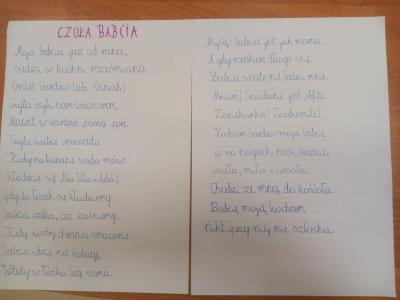 CZUŁA BABCIA
Moja babcia już od rana,
siedzi w kuchni roześmiana
Oraz bardzo lubi
Czyta bajki nam wieczorem.
Nawet w bardzo późną porę.
Czyta świetne opowiada
Kiedy na kanapie siada mówi:
Kładźcie się Ala Ula i Ada!
Gdy do łóżek się kładziemy
babcia czeka, aż zaśniemy.
Kiedy siostry chrapią, smacznie
babcia idzie na kolację.
Wtedy w łóżku leżę sama.
Myślę: babcia jest jak mama.
I gdy rankiem długo śpię,
Babcia wcale nie budzi mnie.
Mniam! Śniadanie jest
Zapiekanka! Znakomite!
Kocham bardzo moją babcię
co na nogach nosi kapcie.
Czuła, miła i wesoła.
Chodzi ze mną do kościoła.
Babcię moją kocham
nikt przy niej nie szlocha.